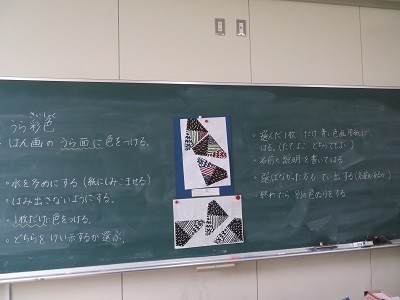 さいしょく
うら彩色
はん画の うら面に色をつける。
・水を多めにする(紙にしみこませる)
・はみ出さないようにする。
・1枚だけ色をつける。
・どちらをけい示するか選ぶ。
・選んだ1枚だけ、青い色画用紙に
はる。(たてよこ どちらでもよい)
・名前と説明を書いてはる
・選ばなかった方も ていねい
・終わったら 別の色ぬりをする